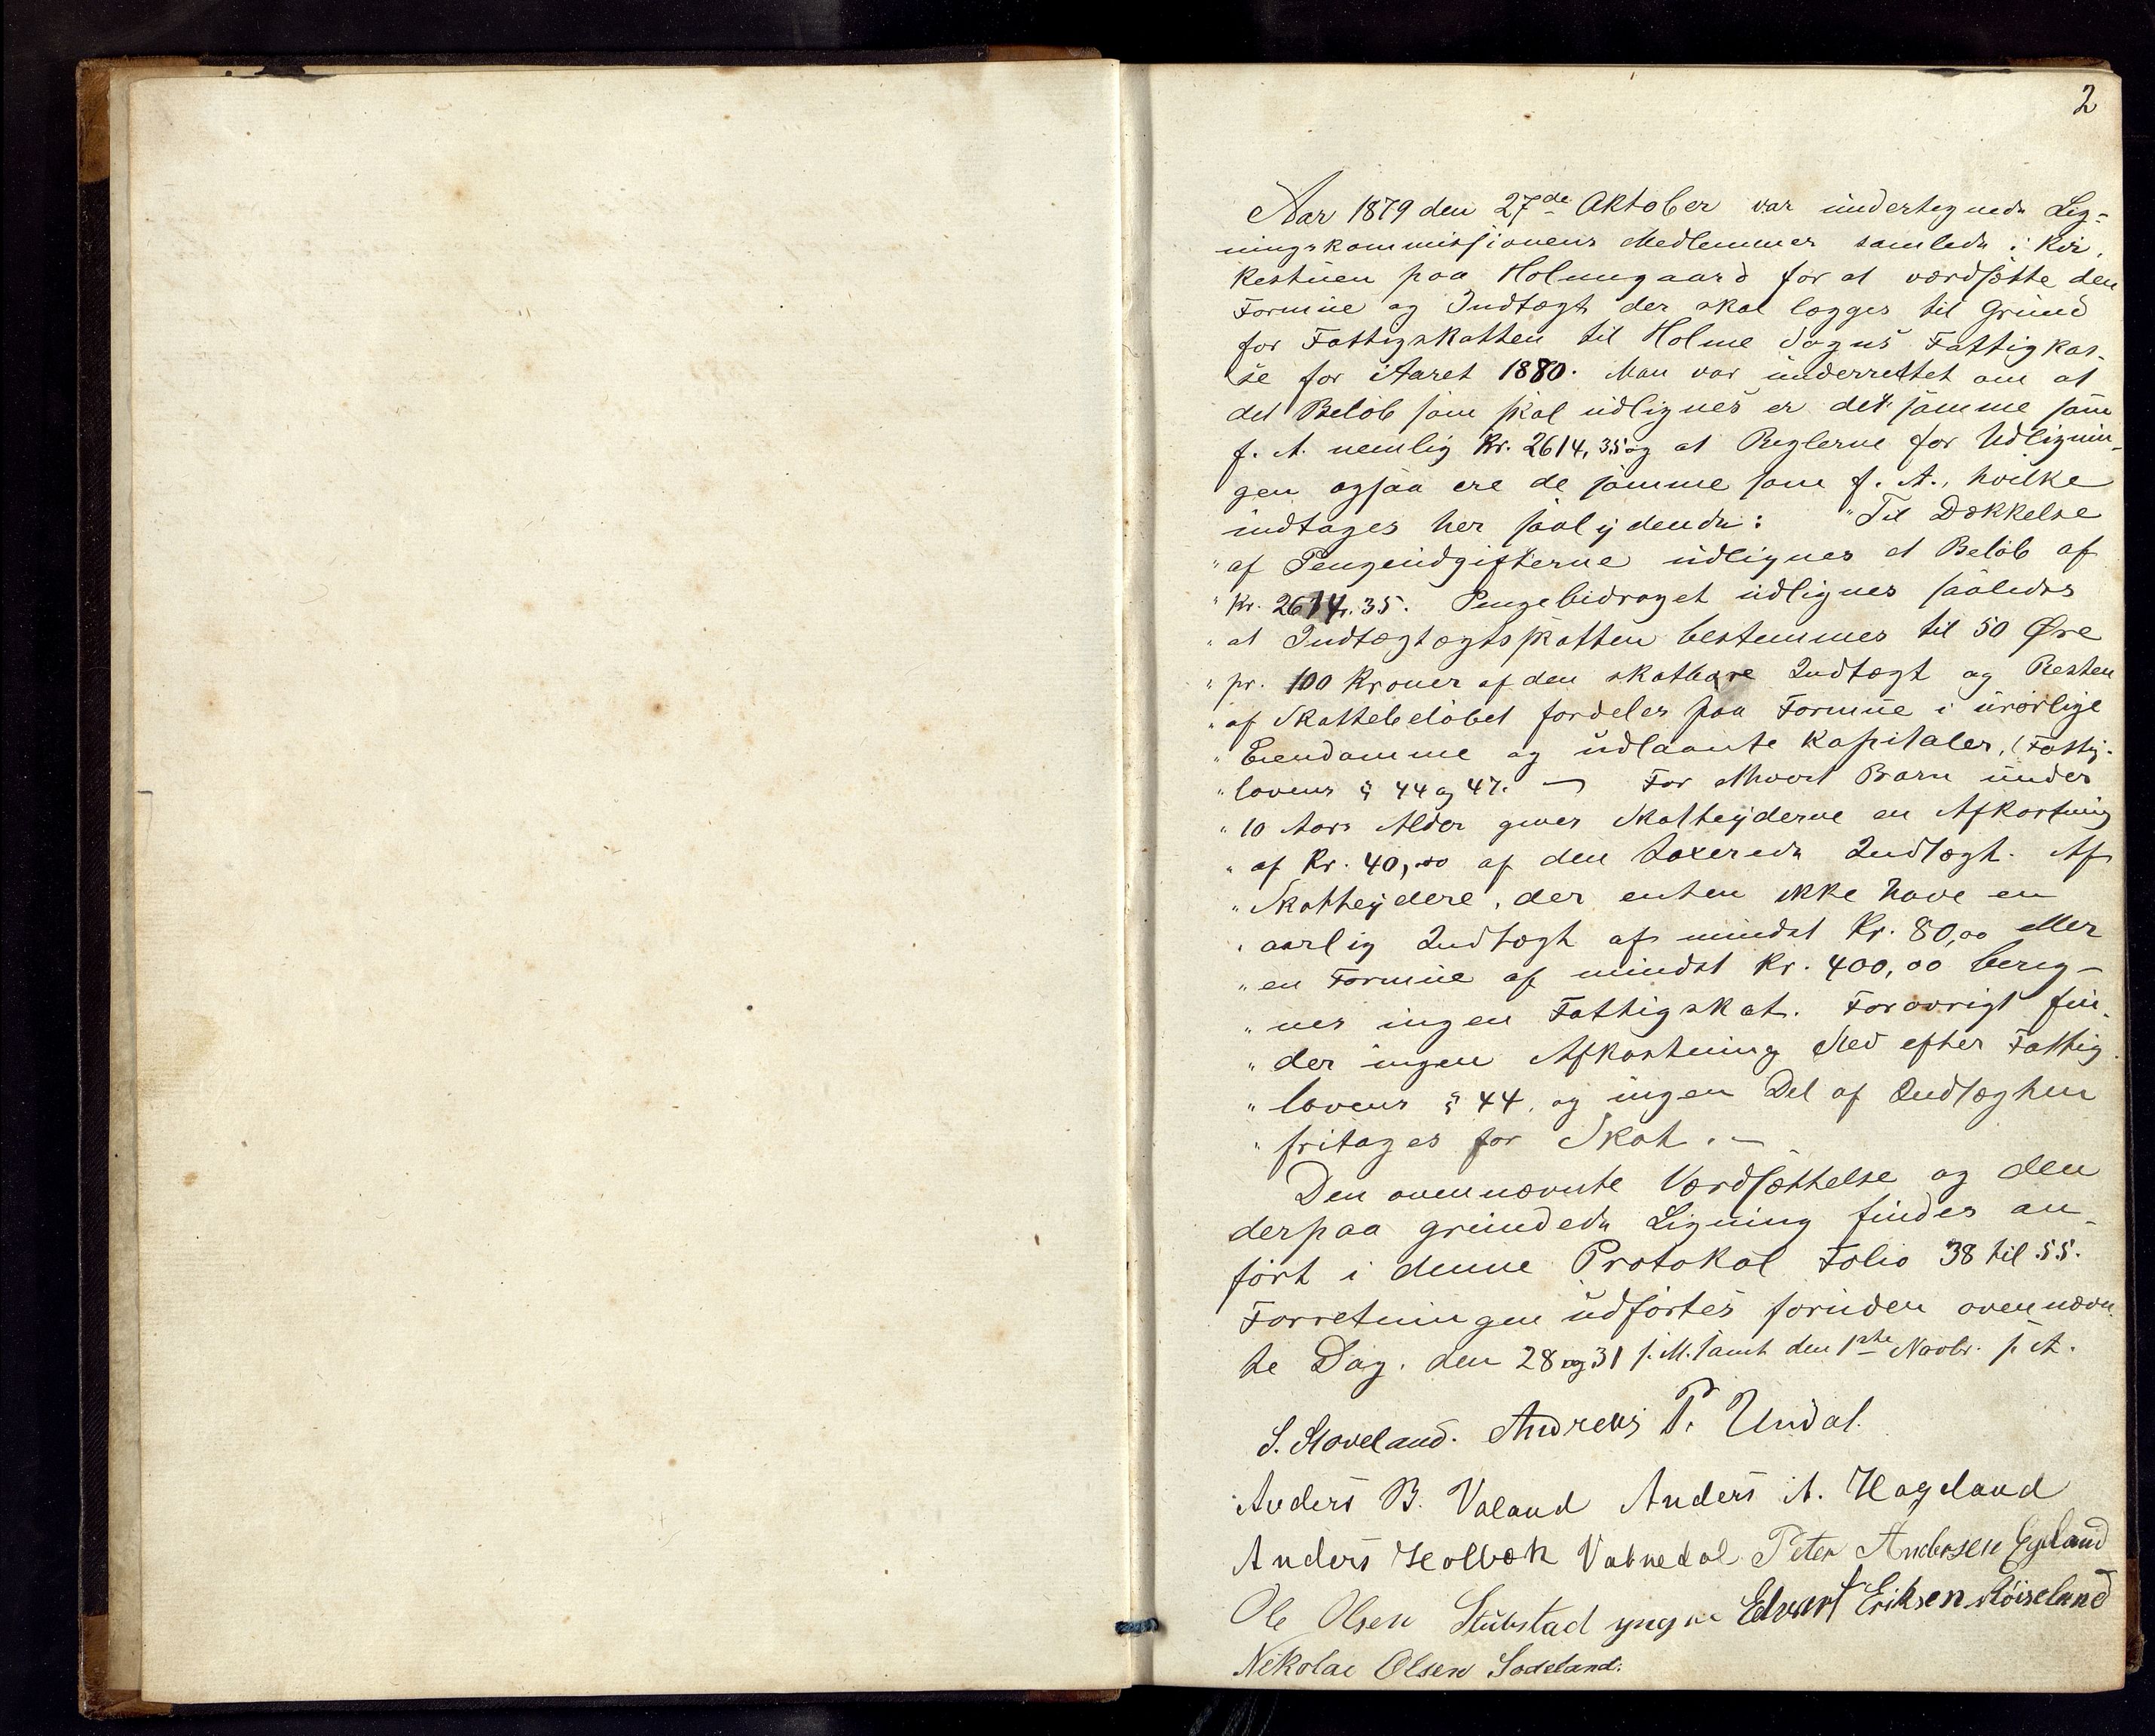 2
Aar 1879 den 27de Oktober var undertegnede Lig-
ningskommissionens Medlemmer samlede i Kir-
kestuen paa Holmegaard for at værdsætte den
Formue og Indtægt der skal lægges til Grund
for Fattigskatten til Holme Sogns Fattigkas-
se for Aaret 1880. Man var underrettet om at
det Beløb som skal udlignes er det samme som
f. A. nemlig Kr. 2614,35 og at Reglerne for Udlignin-
gen ogsaa ere de samme som f. A., hvilke
indtages her saalydende: "Til Dækkelse
" af Pengeudgifterne udlignes et Beløb af
" Kr. 2614,35. Pengebidraget udlignes saaledes
" at Indtægtægtsskatten bestemmes til 50 Øre
" pr. 100 Kroner af den skatbare Indtægt og Resten
" af Skattebeløbet fordeles paa Formue i urørlige
" Eiendomme og udlaante Kapitaler, (Fattig-
" lovens § 44 og 47. — For ethvert Barn under
" 10 Aars Alder gives Skatteyderne en Afkortning
" af Kr. 40,00 af den taxerede Indtægt. Af
" Skatteydere, der enten ikke have en
" aarlig Indtægt af mindst Kr. 80,00 eller
" en Formue af mindst Kr. 400,00 bereg-
" nes ingen Fattigskat. Forøvrigt fin-
" der ingen Afkortning Sted efter Fattig-
" lovens § 44, og ingen Del af Indtægten
" fritages for Skat. —
Den ovennævnte Værdsættelse og den
derpaa grundede Ligning findes an-
ført i denne Protokol Folio 38 til 55.
Forretningen udførtes foruden ovennævn-
te Dag, den 28 og 31 s. M. samt den 1ste Novbr. s. A.
S. Stoveland. Andreas P. Undal.
Anders B. Valand Anders A. Hageland
Anders Holbæk Vatnedal Peter Andersen Egeland
Ole Olsen Stubstad yngre Edvart Eriksen Møiseland
Nikolai Olsen Sodeland.